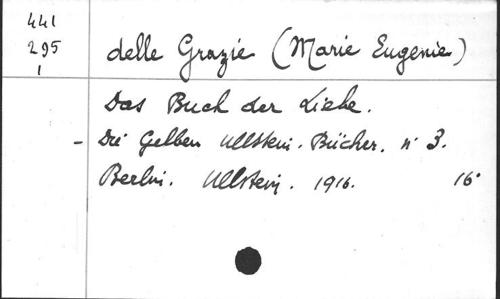 441
295
1
delle Grazie (Marie Eugenie)
Das Buch der Liebe.
- Die Gelben Ullstein-Bücher. n° 3.
Berlin. Ullstein. 1916. 16°